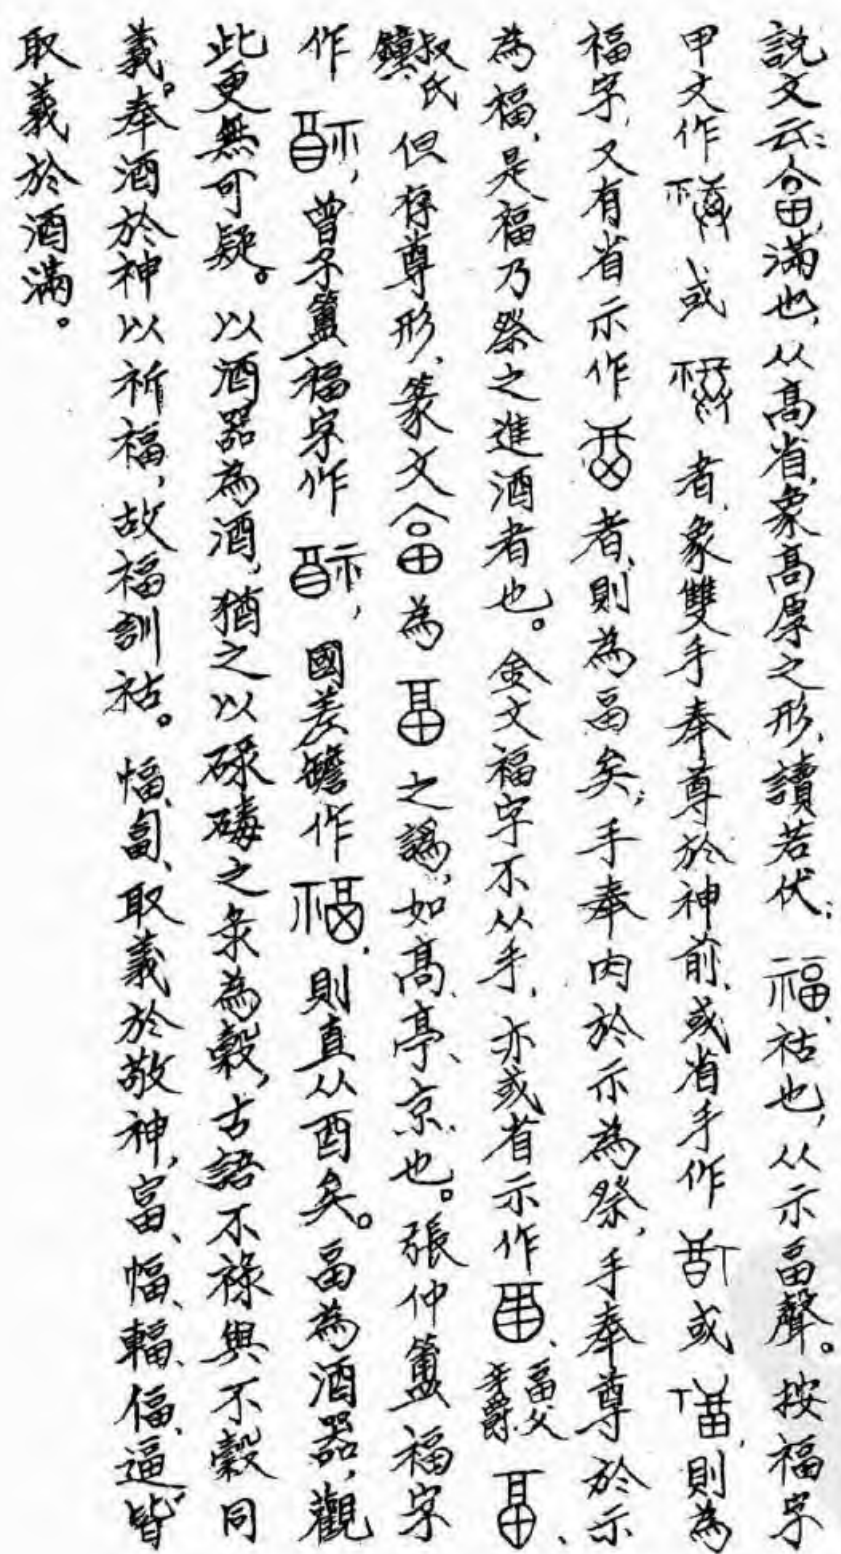 說文云：畗，滿也，从高省，象高厚之形，讀若伏：福，祜也，从示畐聲。按福字
甲文作 或 者，象雙手奉尊於神前，或省手作 或 ，則為
福字，又有省示作 者，則為畐矣；手奉肉於示為祭，手奉尊於示
為福，是福乃祭之進酒者也。金文福字不从手，亦或省示作 、畐父辛爵 、
叔氏鐘 但存尊形，篆文 為 之譌，如高、亭、京也。張仲簠福字
作 ，曾子簠福字作 ，國差𦉜作 ，則真从酉矣。畐為酒器，觀
此更無可疑。以酒器為酒，猶之以碌磚之彔為穀，古語不祿與不穀同
義。奉酒於神以祈福，故福訓祜。幅、匐、取義於敬神，富、幅、輻、偪、逼、皆
取義於酒滿。